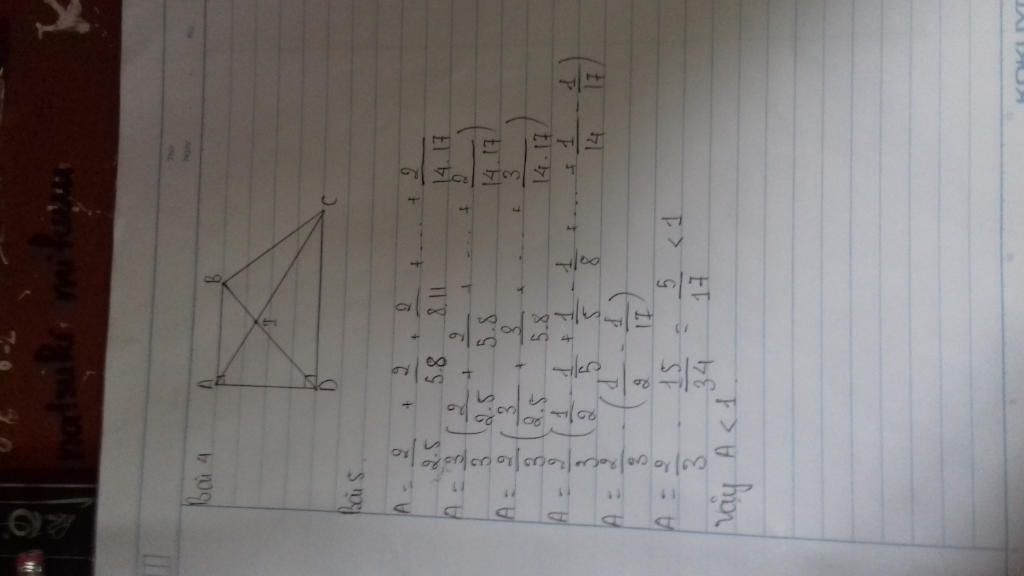 Bài 4
A B
I
D C
Bài 5
A = 2/2.5 + 2/5.8 + 2/8.11 + ..... + 2/14.17
A = 2/3 (2/2.5 + 2/5.8 + ..... + 2/14.17)
A = 2/3 (3/2.5 + 3/5.8 + ..... + 3/14.17)
A = 2/3 (1/2 - 1/5 + 1/5 - 1/8 + ..... + 1/14 - 1/17)
A = 2/3 . (1/2 - 1/17)
A = 2/3 . 15/34 = 5/17 < 1
Vậy A < 1